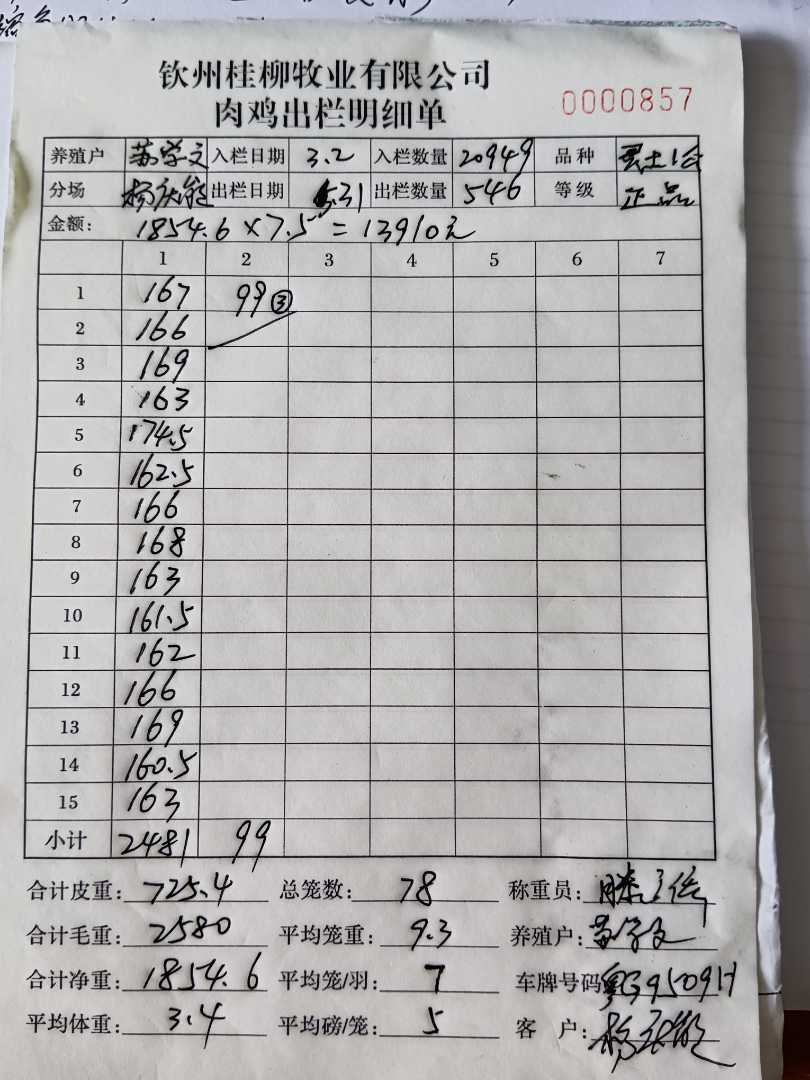 钦州桂柳牧业有限公司
肉鸡出栏明细单
0000857
养殖户 苏学文 入栏日期 3.2 入栏数量 20949 品种 土1公
分场 出栏日期 5.31 出栏数量 546 等级 正品
金额: 1854.6×7.5=13910元
1 2 3 4 5 6 7
1 167 99③
2 166
3 169
4 163
5 174.5
6 162.5
7 166
8 168
9 163
10 161.5
11 162
12 166
13 169
14 160.5
15 163
小计 2481 99
合计皮重: 725.4 总笼数: 78 称重员:
合计毛重: 2580 平均笼重: 9.3 养殖户: 苏学文
合计净重: 1854.6 平均笼/羽: 7 车牌号码 粤G9509H
平均体重: 3.4 平均磅/笼: 5 客户: